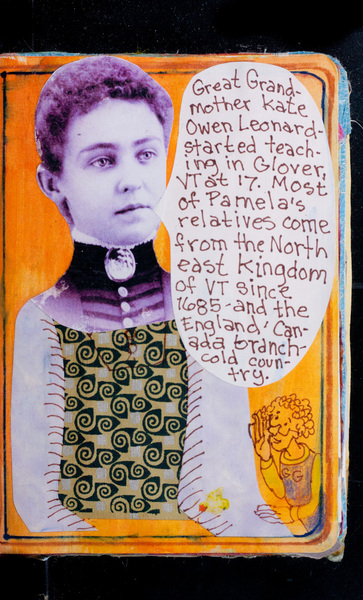 Great Grand-
mother Kate
Owen Leonard-
started teach-
ing in Glover,
VT at 17. Most
of Pamela's
relatives come
from the North
east Kingdom
of VT since
1685-and the
England/Can-
ada branch-
cold coun-
try.
GG